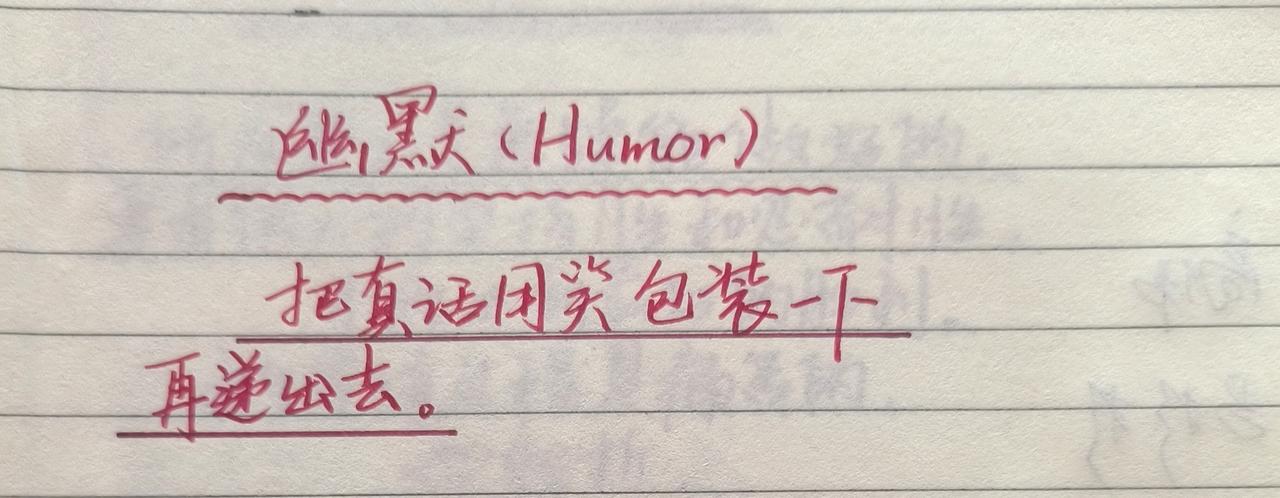 幽默(Humor)
把真话用笑包装一下
再递出去。